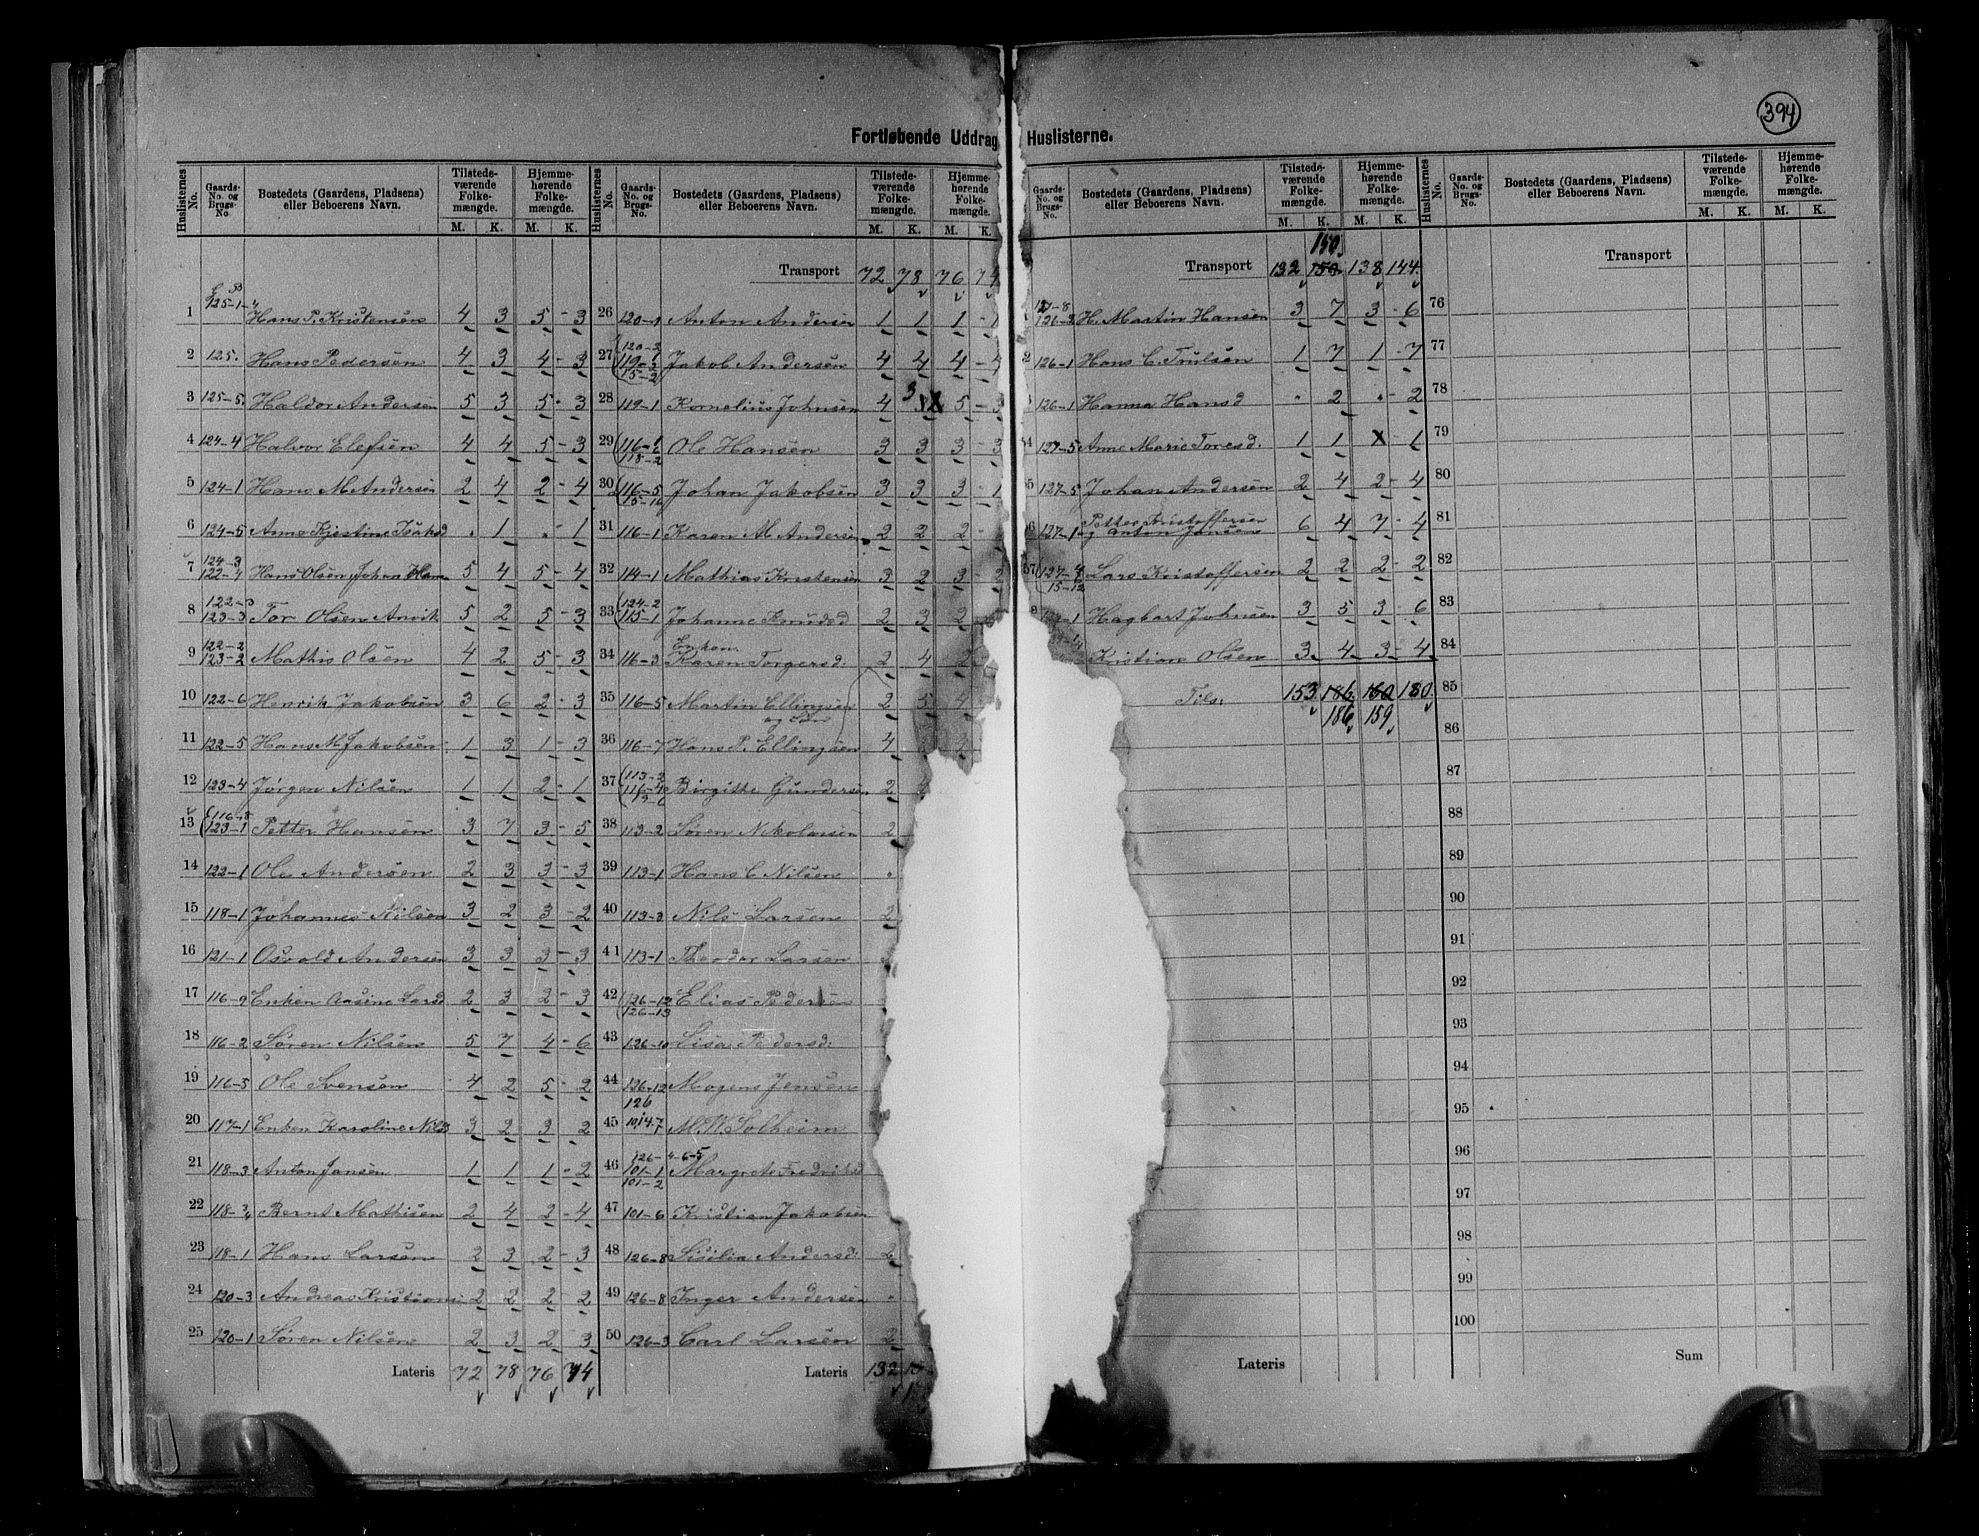 394
Fortløbende Uddrag Huslisterne.
Huslisternes No. Gaards-No. og Brugs-No. Bostedets (Gaardens, Pladsens) eller Beboerens Navn. Tilstede-værende Folke-mængde. Hjemme-hørende Folke-mængde.
M. K. M. K.
1 125-1 Hans P. Kristensen 4 3 5 - 3
2 125. Hans Pedersen 4 3 4 - 3
3 125-5. Haldor Andersen 5 3 5 - 3
4 124-4 Halvor Elefsen 4 4 5 - 3
5 124-1 Hans M Andersen 2 4 2 - 4
6 124-5 Anne Kjestine Isaksd " 1 " - 1
7 124-3 122-7 Hans Olsen Johan Han 5 4 5 - 4
8 122-3 123-3 Tor Olsen Anvik 5 2 5 - 3
9 122-2 123-2 Mathis Olsen 4 2 5 - 3
10 122-6 Henrik Jakobsen 3 6 2 - 3
11 122-5 Hans M Jakobsen 1 3 1 - 3
12 123-4 Jørgen Nilsen 1 1 2 - 1
13 116-8 123-1 Petter Hansen 3 7 3 - 5
14 122-1 Ole Andersen 2 3 3 - 3
15 118-1 Johannes Nilsen 3 2 3 - 2
16 121-1 Osvald Andersen 3 3 3 - 3
17 116-9 Enken Aasine Larsd 2 3 2 - 3
18 116-2 Søren Nilsen 5 7 4 - 6
19 116-5 Ole Svensen 4 2 5 - 2
20 117-1 Enken Karoline Nilsd 3 2 3 2
21 118-3 Anton Jansen 1 1 1 - 2
22 118-3/4 Bernt Mathisen 2 4 2 - 4
23 118-1 Hans Larsen 2 3 2 - 3
24 120-3 Andreas Kristians 2 2 2 2
25 120-1 Søren Nilsen 2 3 2 - 3
Lateris 72 78 76 74
Huslisternes No. Gaards-No. og Brugs-No. Bostedets (Gaardens, Pladsens) eller Beboerens Navn. Tilstede-værende Folke-mængde. Hjemme-hørende Folke-mængde.
M. K. M. K.
Transport 72 78 76 74
26 120-1 Anton Andersen 1 1 1 - 1
27 120-2 119-2 15-2 Jakob Andersen 4 4 4 - 4
28 119-1 Kornelius Johnsen 4 3 5 - 3
29 116-6 118-2 Ole Hansen 3 3 3 - 3
30 116-5 15-16 Johan Jakobsen 3 3 3 - 1
31 116-1 Karen M Andersen 2 2 2 -
32 114-1 Mathias Kristensen 3 2 3 - 2
33 124-2 115-1 Johanne Knudsd 2 3 2
34 116-3 Enken Karen Torgersd: 2 4
35 116-5 Martin Ellingsen og Søn 2 5 4
36 116-7 Hans P. Ellingsen 4
37 113-2 116-4 Birgitte Gundersen 2
38 113-2 Søren Nikolaisen 2
39 113-1 Hans C Nilsen
40 113-3 Nils Larsen 2
41 113-1 Theodor Larsen
42 126-12 126-13 Elias Pedersen
43 126-10 Lisa Pedersd:
44 126-12 Mogens Jensen
45 126 101 4.7 M. W. Solheim
46 126-4-6-5 101-1 101-2 Margrete Fredriksd
47 101-6 Kristian Jakobsen
48 126-8 Sisilia Andersd: 2
49 126-8 Inger Andersen
50 126-3 Carl Larsen 2
Lateris 132
Gaards-No. og Brugs-No. Bostedets (Gaardens, Pladsens) eller Beboerens Navn. Tilstede-værende Folke-mængde. Hjemme-hørende Folke-mængde.
M. K. M. K.
150
Transport 132 150 138 144
127-8 126-2 H. Martin Hansen 3 7 3 - 6
2 126-1 Hans C. Trulsen 1 7 1 - 7
126-1 Hanna Hansd " 2 " - 2
4 127-5 Anne Marie Toresd: 1 1 x - 1
5 127-5 Johan Andersen 2 4 2 - 4
6 127-1 Petter Kristoffersen og Anton Jansen 6 4 7 - 4
57 127-4 15-12 Lars Kristoffersen 2 2 2 - 2
8 Hagbart Johnsen 3 5 3 6
Kristian Olsen 3 4 3 - 4
Tils: 153 186 160 180
186 159
Huslisternes No. Gaards-No. og Brugs-No. Bostedets (Gaardens, Pladsens) eller Beboerens Navn. Tilstede-værende Folke-mængde. Hjemme-hørende Folke-mængde.
M. K. M. K.
Transport
76
77
78
79
80
81
82
83
84
85
86
87
88
89
90
91
92
93
94
95
96
97
98
99
100
Lateris
Sum